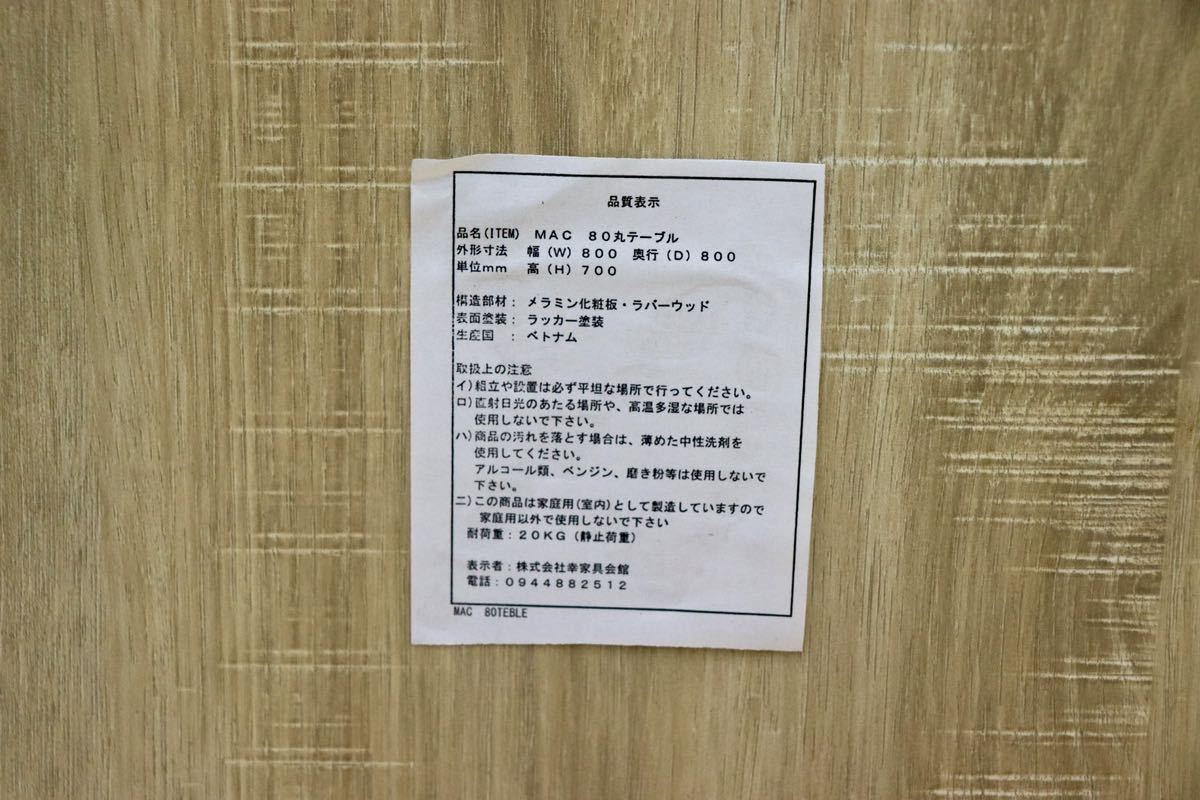 品質表示
品名(ITEM) MAC 80丸テーブル
外形寸法 幅(W)800 奥行(D)800
単位mm 高(H)700
構造部材： メラミン化粧板・ラバーウッド
表面塗装： ラッカー塗装
生産国 ： ベトナム
取扱上の注意
イ)組立や設置は必ず平坦な場所で行ってください。
ロ)直射日光のあたる場所や、高温多湿な場所では
使用しないで下さい。
ハ)商品の汚れを落とす場合は、薄めた中性洗剤を
使用してください。
アルコール類、ベンジン、磨き粉等は使用しないで
下さい。
ニ)この商品は家庭用(室内)として製造していますので
家庭用以外で使用しないで下さい
耐荷重：20KG(静止荷重)
表示者：株式会社幸家具会館
電話：0944882512
MAC 80TEBLE